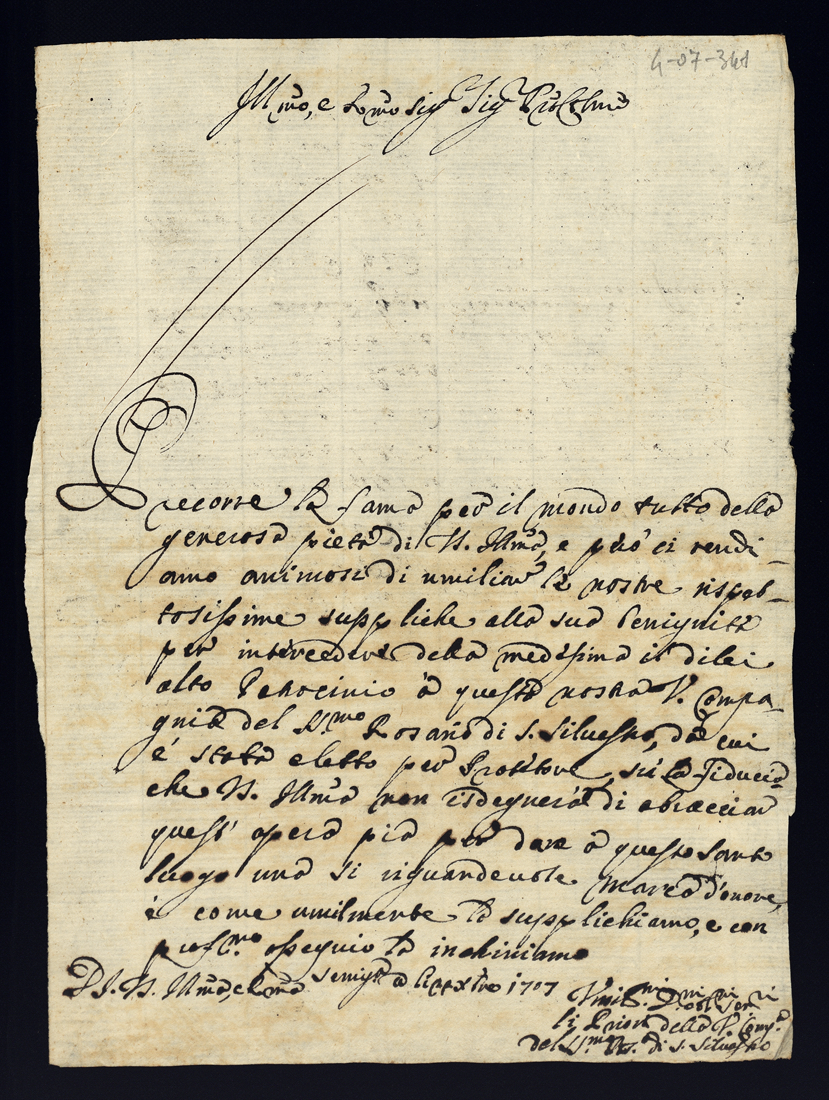 4-07-341
Ill.mo, e Sig.r Sig.r
Precorre la fama per il mondo tutto della
generosa pietà di V. Ill.ma, e però ci rendi-
amo animosi di umiliar le nostre rispet-
tosissime suppliche alla sua benignità
per intercedere della medesima il di lei
alto Patrocinio à questa nostra V. Compa-
gnia del SS.mo Rosario di S. Siluestro, da cui
è stata eletto per Protettore, sù la fiducia
che V. Ill.ma non isdegnerà di abracciar
quest' opera pia per dare à questo santo
luogo una si riguardeuole marca d'onore,
è come umilmente la supplichiamo, e con
prof.mo ossequio la inchiniamo
Di V. Ill.ma, 1707
li Priori della V. Comp.a
del SS.mo Ros. di S. Siluestro